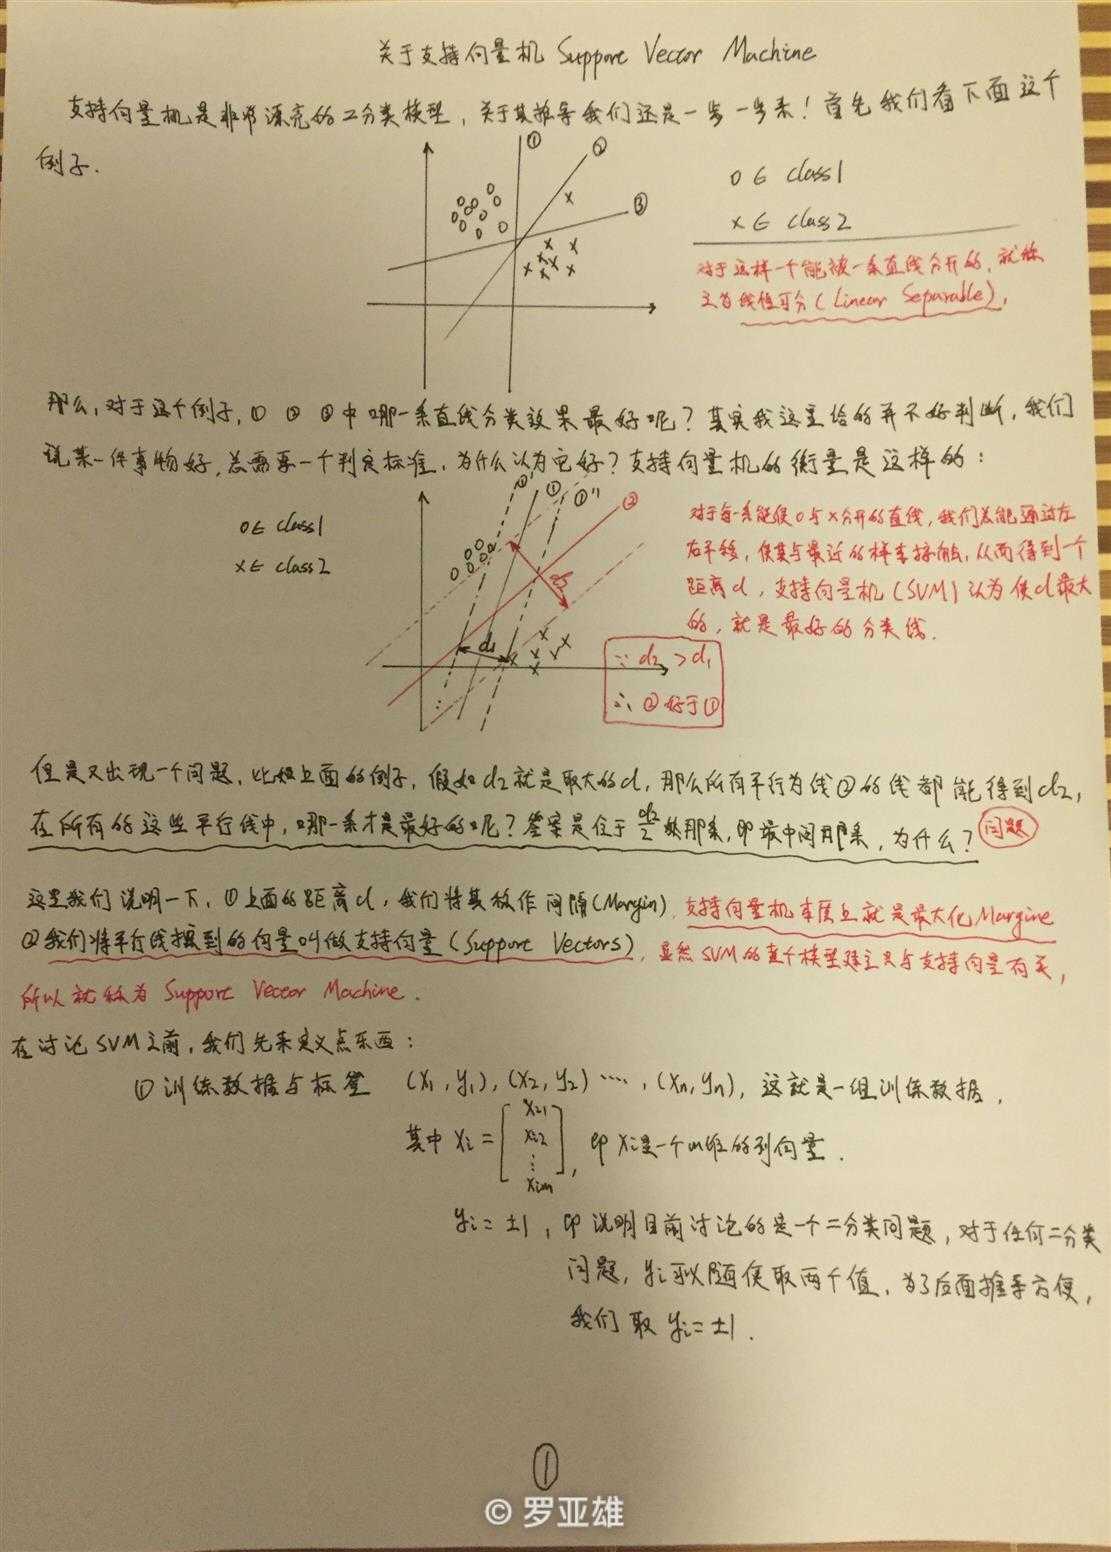 关于支持向量机 Support Vector Machine
支持向量机是非常漂亮的二分类模型，关于其推导我们还是一步一步来！首先我们看下面这个
例子.
① ② ③
o ∈ class1
x ∈ class2
对于这样一个能被一条直线分开的，就称
之为线性可分 (Linear Separable).
那么，对于这个例子，① ② ③中哪一条直线分类效果最好呢？其实我这里给的并不好判断，我们
说某一件事物好，总需要一个判定标准，为什么认为它好？支持向量机的衡量是这样的：
①' ① ①'' ②
o∈ class1
x∈ class2
d1 d2
对于每一条能使o与x分开的直线，我们总能通过左
右平移，使其与最近的样本接触，从而得到一个
距离d，支持向量机 (SVM) 认为使d最大
的，就是最好的分类线.
∵ d2 > d1
∴ ②好于①
但是又出现一个问题，比如上面的例子，假如d2就是最大的d，那么所有平行为线②的线都能得到d2，
在所有的这些平行线中，哪一条才是最好的呢？答案是位于 d2/2 处那条，即最中间那条，为什么？ 问题
这里我们说明一下，①上面的距离d，我们将其称作间隔(Margin)，支持向量机本质上就是最大化Margine
②我们将平行线撞到的向量叫做支持向量 (Support Vectors)，显然SVM的整个模型建立只与支持向量有关，
所以就称为 Support Vector Machine.
在讨论SVM之前，我们先来定义点东西：
① 训练数据与标签 (x1, y1), (x2, y2) ····, (xn, yn)，这就是一组训练数据，
其中 xi = [xi1 xi2 ⋮ xim]，即xi是一个m维的列向量.
yi = ±1，即说明目前讨论的是一个二分类问题，对于任何二分类
问题，yi可以随便取两个值，为了后面推导方便，
我们取 yi = ±1.
①
© 罗亚雄